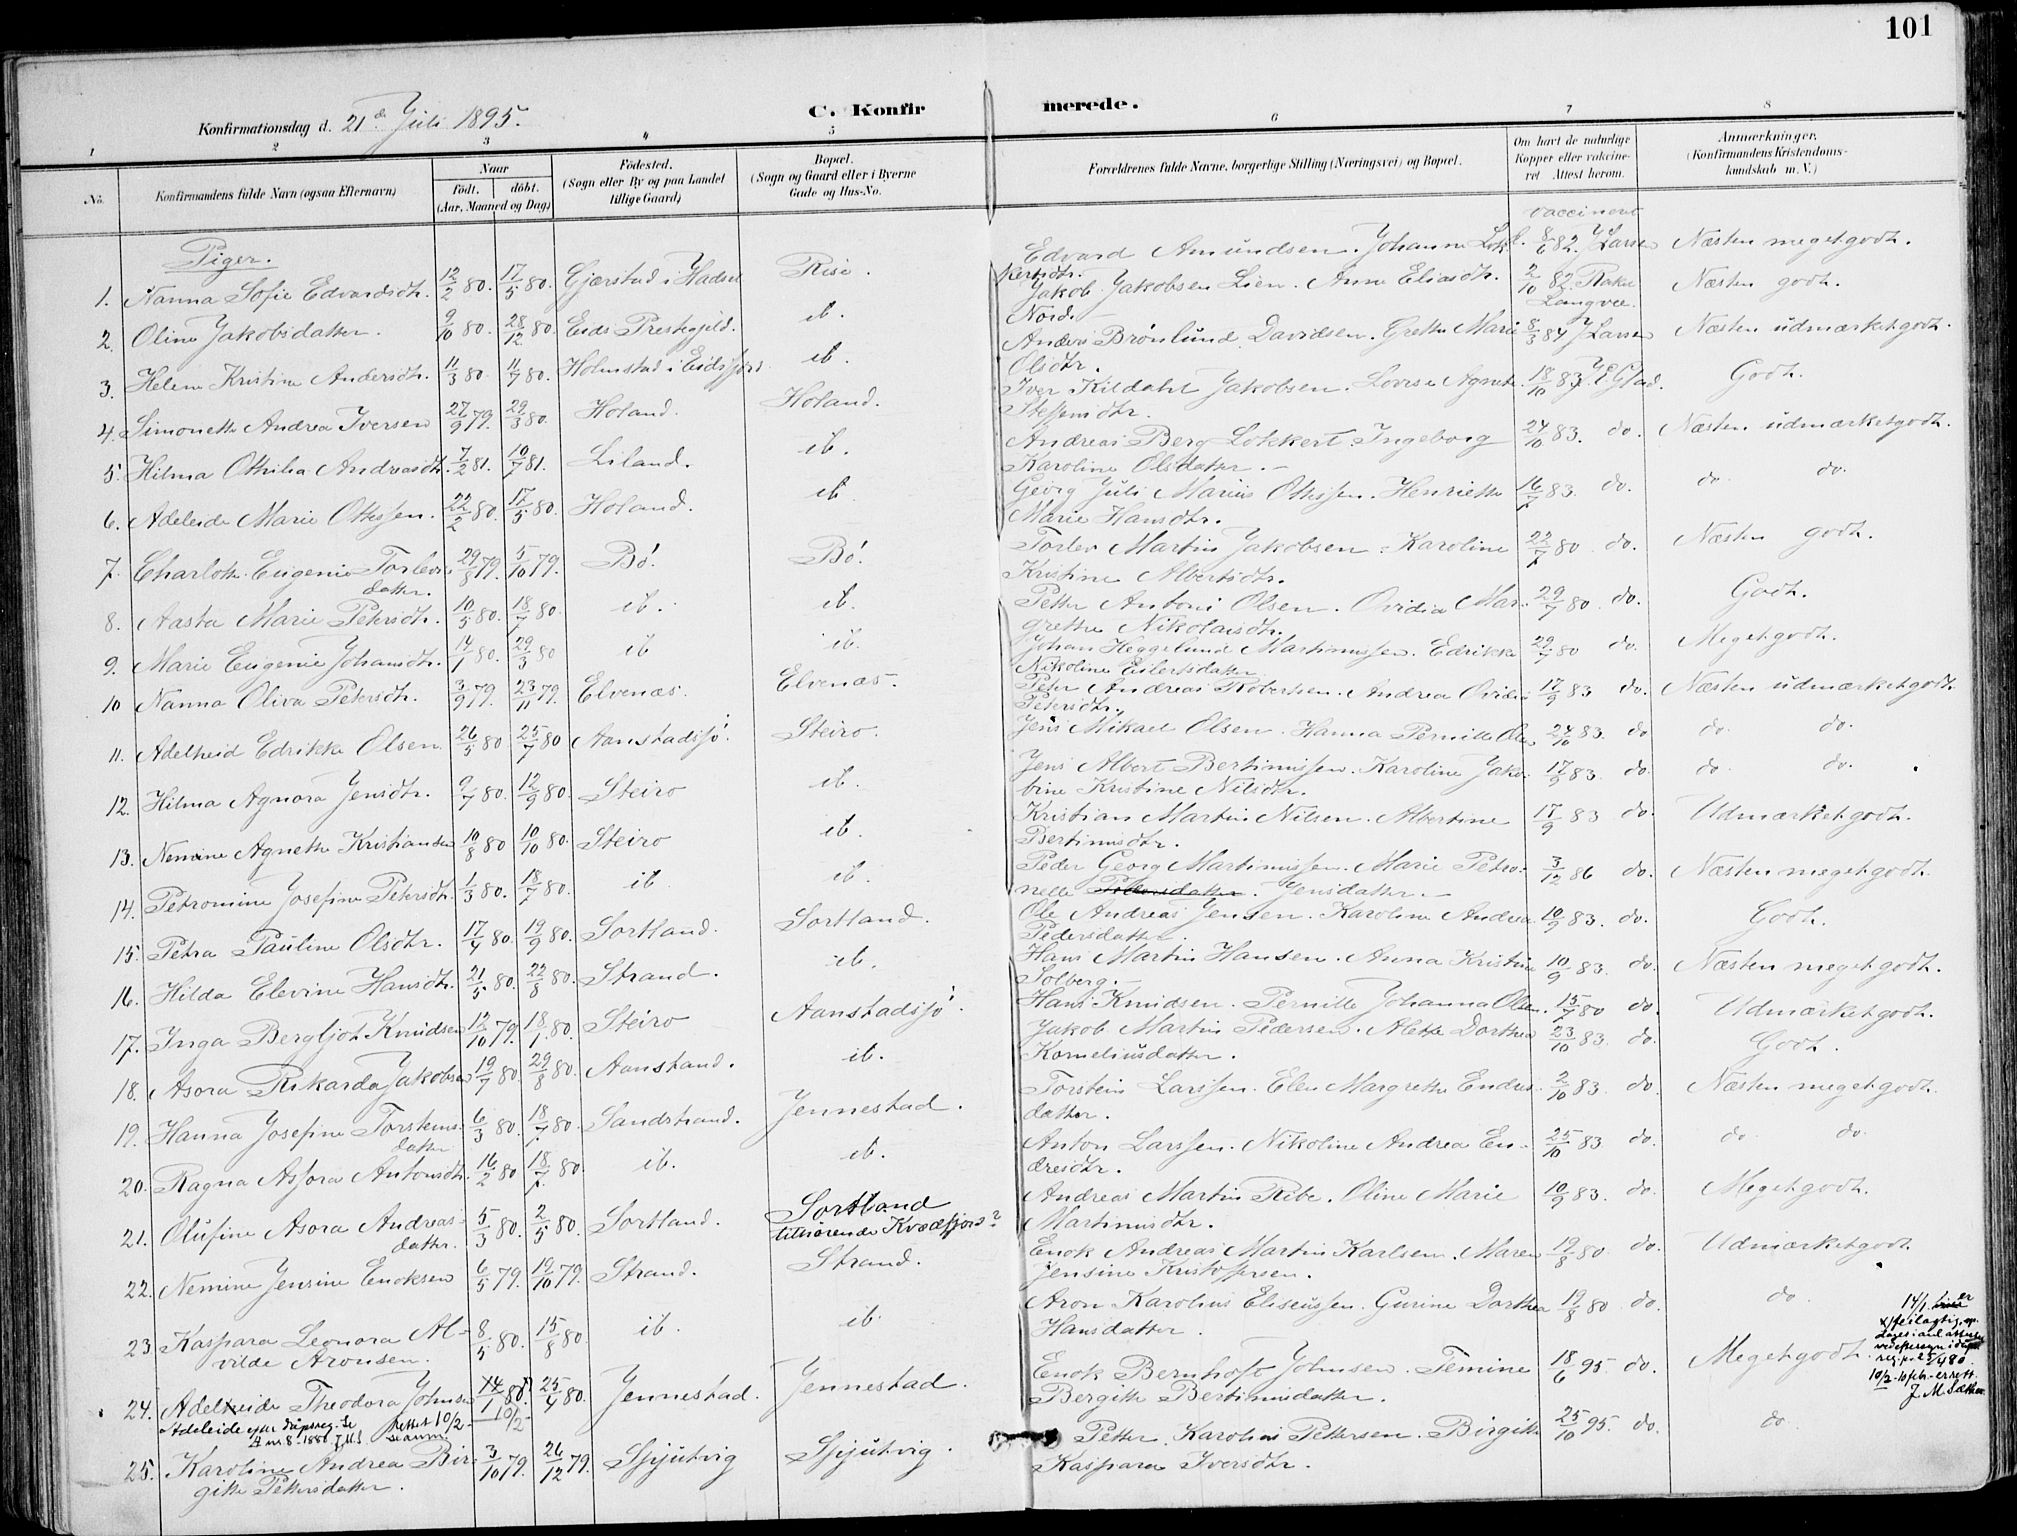 101
C. Konfirmerede.
Konfirmationsdag d. 21de Juli 1895.
1 2 3 4 5 6 7 8
No. Konfirmandens fulde Navn (ogsaa Efternavn)
Naar
Födt. döbt.
(Aar, Maaned og Dag)
Födested.
(Sogn eller By og paa Landet
tillige Gaard)
Bopæl.
(Sogn og Gaard eller i Byerne
Gade og Hus-No.
Forældrenes fulde Navne, borgerlige Stilling (Næringsvei) og Bopæl.
Om havt de naturlige
Kopper eller vakcine-
ret Attest herom.
Anmærkninger.
(Konfirmandens Kristendoms-
kundskab m. V.)
vaccineret
Piger.
1. Nanna Sofie Edvardsdtr. 12/2 80. 17/5 80. Gjærstad i Hadsel Rise. Edvard Amundsen. Johanna 8/6 82. J Larsen Næsten meget godt.
2. Oline Jakobsdatter. 9/10 80. 28/12 80. Eids Prestegjeld. ib. Jakob Jakobsen Lien. Anne Eliasdtr. 2/10 82. Næsten godt.
Nord.
3. Helene Kristine Andersdtr. 11/3 80. 11/7 80. Holmstad i Eidsfjord ib. Anders Brønlund Davidsen. Grethe Marie 8/3 84 J Larsen Næsten udmærket godt.
Olsdtr.
4. Simonette Andrea Iversen 27/9 79. 29/3 80. Holand. Holand. Iver Kildahl Jakobsen. Lovise Agnete 18/10 83. Glad. Godt.
Steffensdtr.
5. Hilma Othilia Andreasdtr. 7/2 81. 10/7 81. Liland. ib. Andreas Berg Lokkert. Ingeborg 24/10 83. do. Næsten udmærket godt.
Karoline Olsdatter.
6. Adeleide Marie Ottessen. 22/2 80. 17/5 80. Holand. ib. Georg Juli Marius Ottessen. Henriette 16/7 83. do. do. do.
Marie Hansdtr.
7. Charlotte Eugenie Torlevs- 29/8 79. 5/10 79. Bö. Bö. Torlev Martin Jakobsen. Karoline 22/7 80 do. Næsten godt.
datter. Kristine Albertsdtr.
8. Aasta Marie Petersdtr. 10/5 80. 18/7 80. ib. ib. Petter Antoni Olsen. Ovidia Mar- 29/7 80. do. Godt.
grethe Nikolaisdtr.
9. Marie Eugenie Johansdtr. 14/1 80. 29/3 80 ib ib. Johan Heggelund Martinussen. Edrikke 29/7 80 do. Meget godt.
Nikoline Eilertsdatter
10 Nanna Oliva Petersdtr. 3/9 79. 23/11 79. Elvenæs. Elvenæs. Peter Andreas Robertsen. Andrea Ovidia 17/9 83 do. Næsten udmærket godt
Petersdtr.
11. Adelheid Edrikke Olsen 26/5 80 25/7 80 Aanstadsjö. Steiro. Jens Mikael Olsen. Hanna Pernille Olsen 24/10 83. do do. do.
12. Hilma Agnora Jensdtr. 9/7 80. 12/9 80. Steiro ib. Jens Albert Bertinussen. Karoline Jako- 17/9 83. do. do. do.
bine Kristine Nilsdtr.
13. Nemine Agnethe Kristiansen 10/8 80 10/10 80. Steiro ib. Kristian Martin Nilsen. Albertine 17/9 83 do. Udmærket godt.
Bertinusdtr.
14. Petromine Josefine Petersdtr. 1/3 80. 18/7 80. ib. ib. Peder Georg Martinussen. Marie Petro- 3/12 86 do. Næsten meget godt.
nelle Pedersdatter. Jensdatter.
15. Petra Pauline Olsdtr. 17/4 80. 19/9 80. Sortland. Sortland. Ole Andreas Jensen. Karoline Andrea 10/9 83. do. Godt.
Pedersdatter.
16. Hilda Elevine Hansdtr. 21/5 80. 22/8 80. Strand. ib. Hans Martin Hansen. Anna Kristine 10/9 83. do. Næsten meget godt.
Solberg.
17. Inga Bergljot Knudsen 12/10 79. 18/1 80. Steiro Aanstadsjö. Hans Knudsen. Pernille Johanna Olsen. 15/7 80 do. Udmærket godt.
18. Asora Rikarda Jakobsen 19/7 80. 29/8 80. Aanstand. ib. Jakob Martin Pedersen. Alette Dorthea 23/10 83. do. Godt.
Korneliusdatter.
19. Hanna Josefine Torsteins- 6/3 80. 18/7 80. Sandstrand. Jennestad. Torstein Larssen. Elen Margrethe Endres- 2/10 83. do. Næsten meget godt.
datter datter.
20. Ragna Assora Antonsdtr. 16/2 80. 18/7 80. ib. ib. Anton Larssen. Nikoline Andrea En- 25/10 83 do. do. do.
dresdtr.
21. Olufine Asora Andreas- 5/3 80. 2/5 80. Sortland. Sortland Andreas Martin Ribe. Oline Marie 10/9 83. do. Meget godt.
datter. tilhörende Kvædfjord? Martinusdtr.
22. Nemine Jensine Enoksen 6/5 79. 19/10 79. Strand. Strand. Enok Andreas Martin Karlsen. Maren 19/8 80. do. Udmærket godt.
Jensine Kristoffersen.
23 Kaspara Leonora Al- 8/5 80. 15/8 80. ib. ib. Aron Karolius Eliseussen. Gurine Dorthea 19/8 80 do. do.
vilde Aronsen. Hansdatter.
24. Adelheide Theodora Johnsen 14/1 80. 25/4 80. Jennestad. Jennestad. Enok Bernhoft Johnsen. Temine 18/6 95 do. Meget godt.
Adeleide efter dåpsreg. Se Rettet 10/2 — 10/2 — Bergitte Bertinusdatter.
se anm.
14/1 er
feilagtig, op-
10/2
J. M. Sæther
25. Karoline Andrea Bir- 3/10 79. 26/12 79. Spjutvig Spjutvig. Petter Karolius Pettersen. Birgitte 25/10 95. do. do.
gitte Pettersdatter. Kaspara Iversdtr.